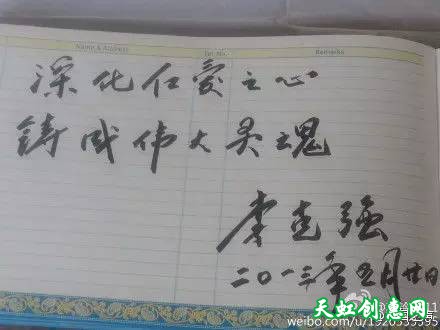 Name & Address Tel. No. Remarks
深化仁爱之心
铸成伟大灵魂
李克强
二〇一三年五月廿日
天虹创惠网